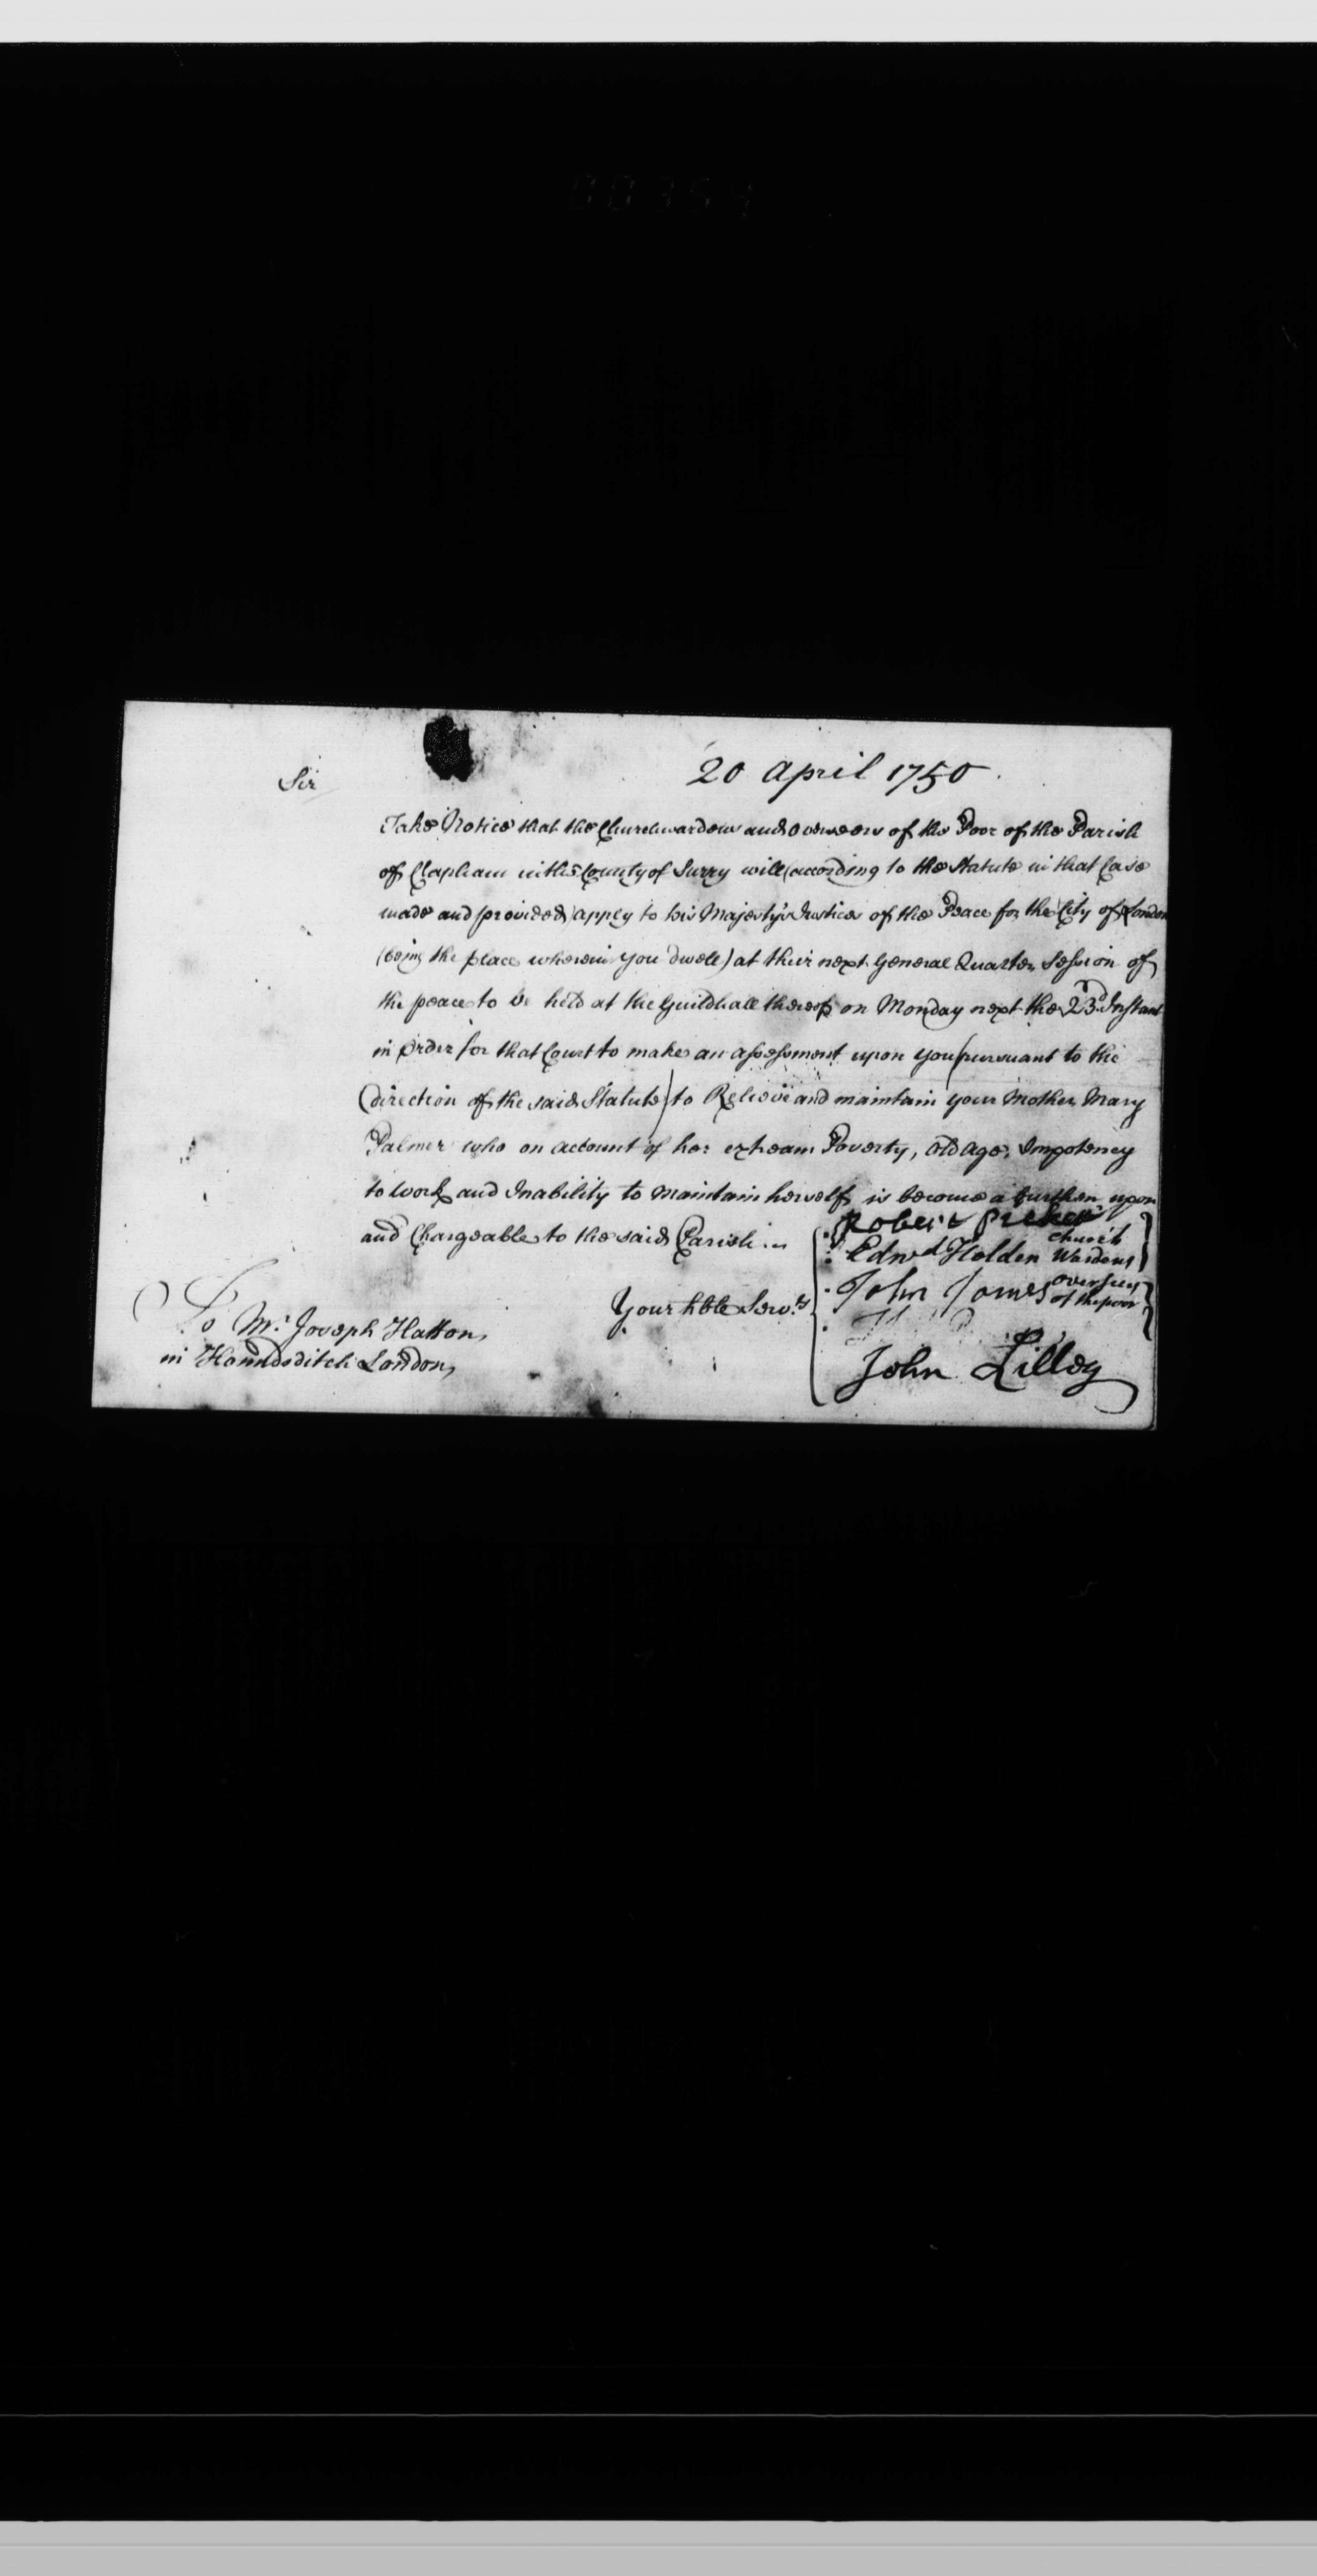 20 April 1750
Sir
Take Notice that the Churchwardens and Overseers of the Poor of the Parish
of Clapham in the County of Surry will (according to the Statute in that Case
made and provided) apply to his Majesty's Justices of the Peace for the City of London
(being the place wherein you dwell) at their next General Quarter Session of
the peace to be held at the Guildhall thereof on Monday next the 23d. Instant
in Order for that Court to make an assessment upon you (pursuant to the
direction of the said Statute) to Relieve and maintain your Mother Mary
Palmer who on account of her extream Poverty, old age, Impotency
to work and Inability to Maintain herself is become a burthen upon
and Chargeable to the said Parish
Robert
Church
Edwd Holden Wardens
John Jones overseers
of the poor
Your hble Servts
John Lilley
To Mr. Joseph Hatton
in Houndsditch London